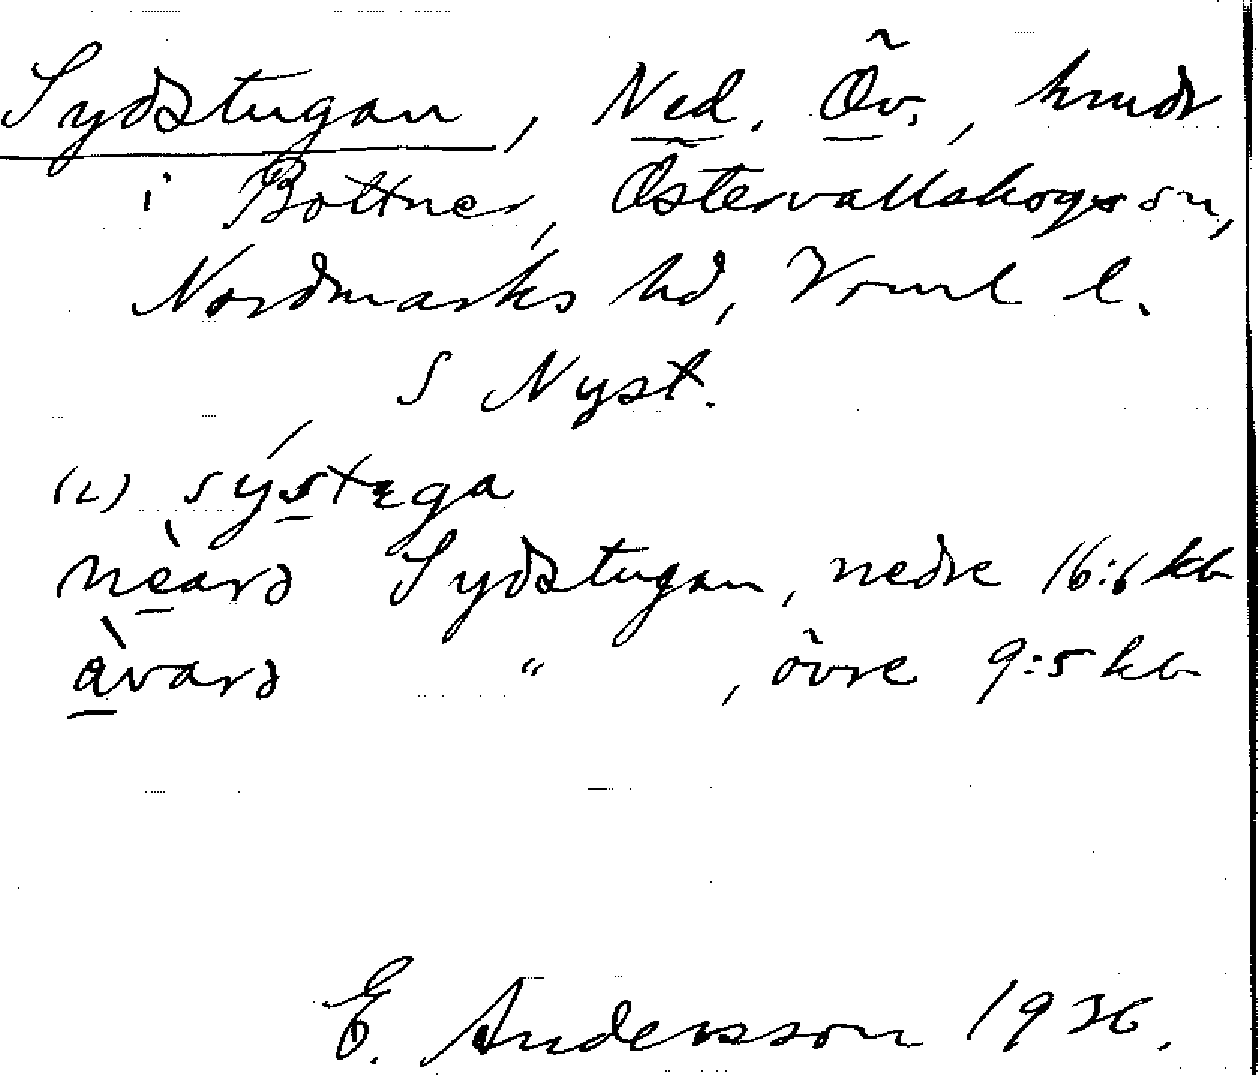 Sydstugan, Ned. Öv., hmdr
i Bottner, Östervallskogs sn,
Nordmarks hd, Vrml l.
S Nyst.
(L) sýstæga
nèarə Sydstugan, nedre 16:6 kb
àvarə " , övre 9:5 kb
E. Andersson 1936.